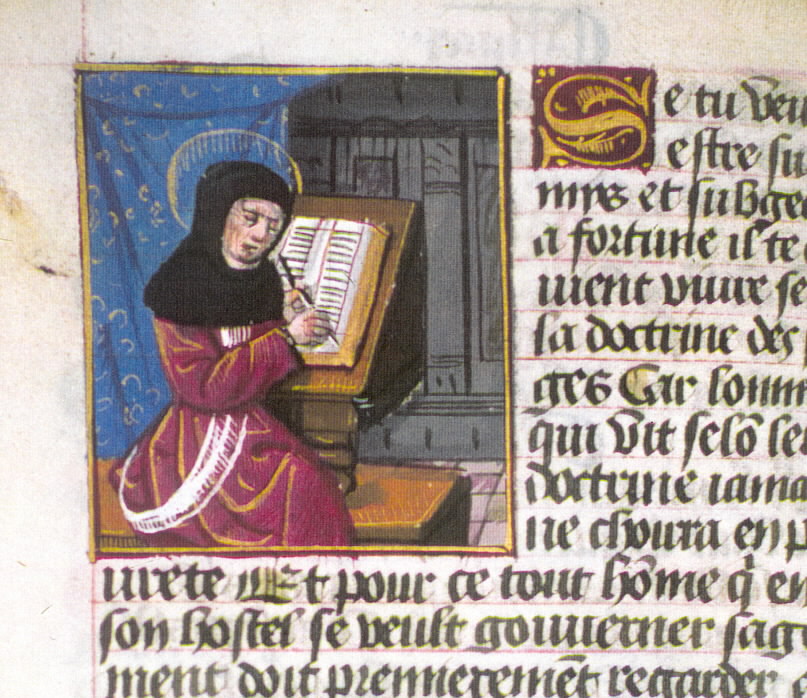 Se tu ven
estre su
mps et subge
a fortune il te
uient viure se
la doctrine des
ges Car lomm
qui vit selō le
doctrine iama
ne cherra en p
urete Et pour ce tout hōme q̄ en
son hostel se veult gouuerner sag
ment doit premieremēt regarder